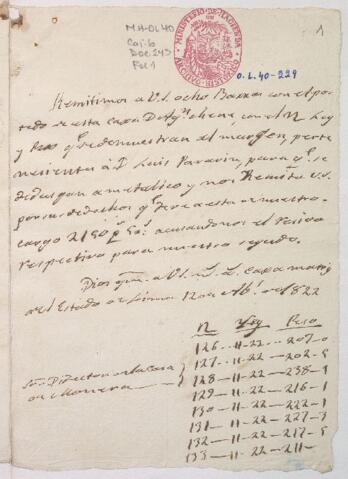 MH-OL40
Caj. 6
Doc 243
Fol 1
MINISTERIO DE HACIENDA
ARCHIVO HISTORICO
O.L. 40-229
1
Remitimos a V.S. ocho Barras con el
de esta Casa D. que tiene con el N. Ley
y peso qe. se demuestran al margen, perte
necientes á D. Luis para qe. se
a metalico y nos Remita V.S.
por sus derechos qe. a esta de nuestro
cargo 2150 ps. acusandonos el recivo
respectivo para nuestro resgdo.
Dios gue. a V.S. ms. as. Casa matriz
del Estado de Lima de 1822
N Ley Peso
126..11-22...207-0
127..11-22...202-5
128-11-22...238-1
129-11-22...216-1
130-11-22...222-1
131-11-22...227-3
132-11-22...217-5
133-11-22...211-
Sor. Director de la Casa
de Moneda